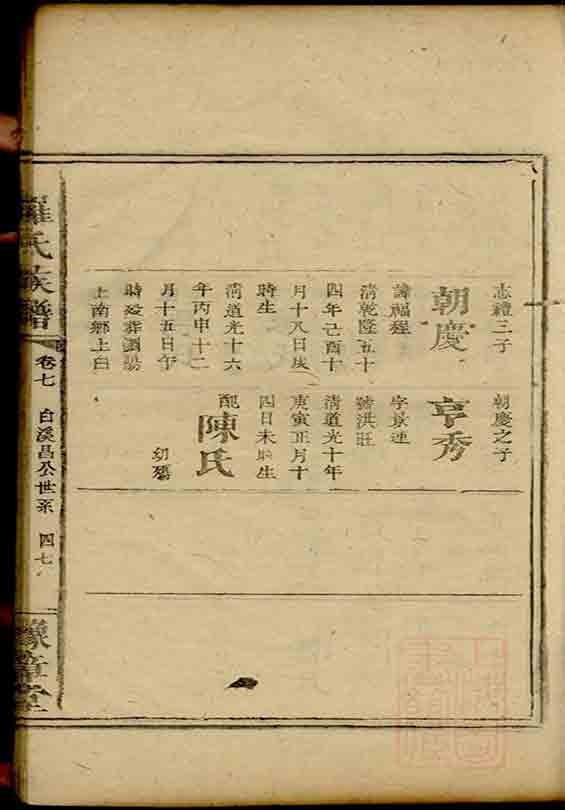 志禮三子
朝慶
諱福程
清乾隆五十
四年己酉十
月十八日戌
時生
清道光十六
年丙申十二
月十五日午
時歿葬瀏陽
上南鄉上白
朝慶之子
亨秀
字景連
號洪旺
清道光十年
庚寅正月十
四日未時生
配
陳氏
幼殤
羅氏族譜
卷七
白溪昌公世系
四七
豫章堂